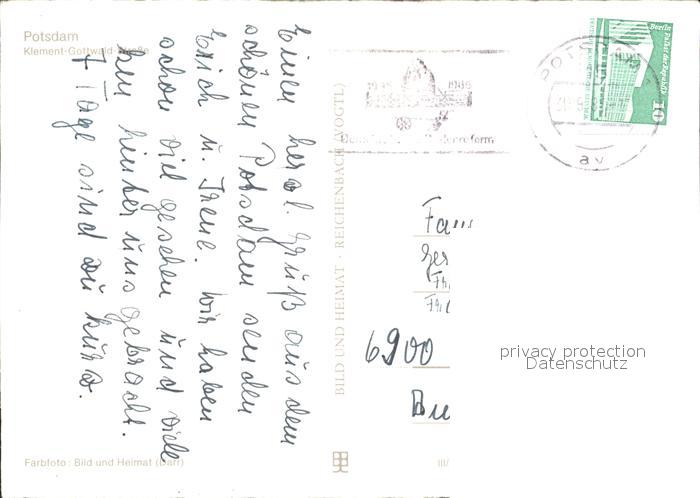 Potsdam
Klement-Gottwald-Straße
Einen herzl. Gruß aus dem
schönen Potsdam senden
Erich u. Irene. Wir haben
schon viel gesehen und viele
km hinter uns gebracht.
7 Tage sind zu kurz.
Farbfoto: Bild und Heimat (Darr)
BILD UND HEIMAT · REICHENBACH (VOGTL)
III/
1945 1985
POTSDAM
av
Berlin, Palast der Republik
10
Fam
6900
privacy protection
Datenschutz